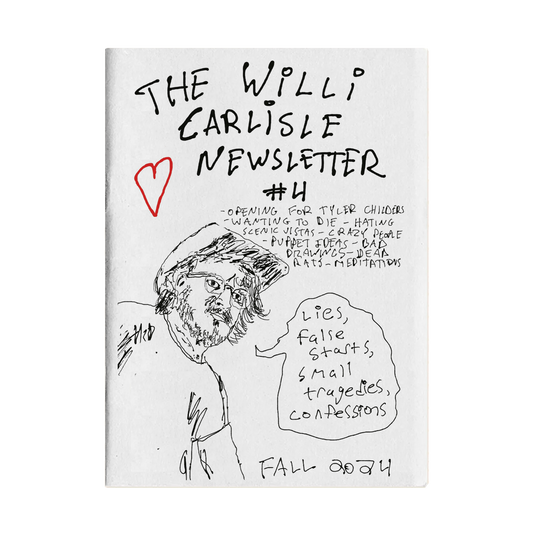 THE WiLLi
CARLiSLE
NEWSLETTER
#4
-OPENING FOR TYLER CHILDERS
-WANTING TO DIE - HATING
SCENIC VISTAS - CRAZY PEOPLE
- PUPPET IDEAS - BAD
DRAWINGS - DEAD
RATS - MEDITATIONS
Lies,
false
starts,
small
tragedies,
confessions
FALL 2024